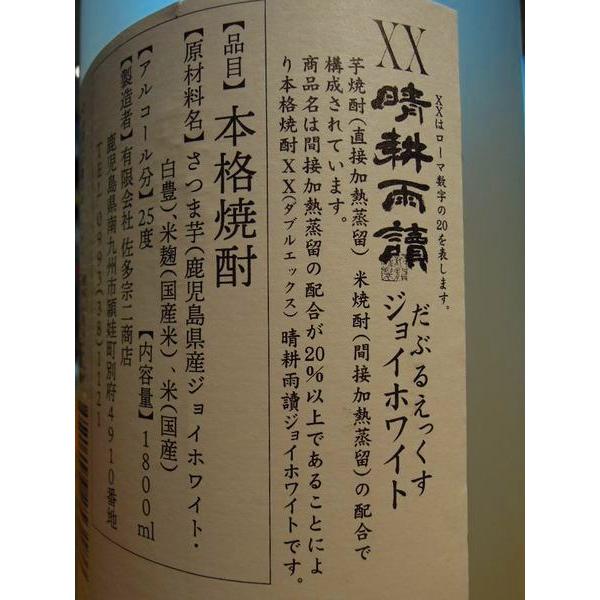 XX 晴耕雨讀
だぶるえっくす
ジョイホワイト
XXはローマ数字の20を表します。
芋焼酎(直接加熱蒸留) 米焼酎(間接加熱蒸留)の配合で
構成されています。
商品名は間接加熱蒸留の配合が20%以上であることによ
り本格焼酎XX(ダブルエックス) 晴耕雨讀ジョイホワイトです。
【品目】本格焼酎
【原材料名】さつま芋(鹿児島県産ジョイホワイト・
白豊)、米麹(国産米)、米(国産)
【アルコール分】25度 【内容量】1800ml
【製造者】有限会社 佐多宗二商店
鹿児島県南九州市頴娃町別府4910番地
TEL 0993(38)1121